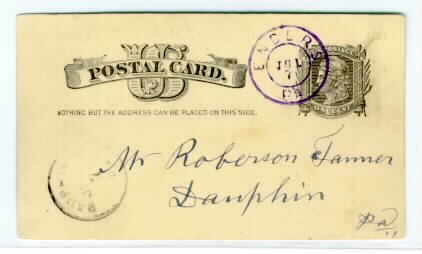 POSTAL CARD.
NOTHING BUT THE ADDRESS CAN BE PLACED ON THIS SIDE.
ENDERS
JUL
7
PA
Mr Roberson Fanner
Dauphin
Pa,,